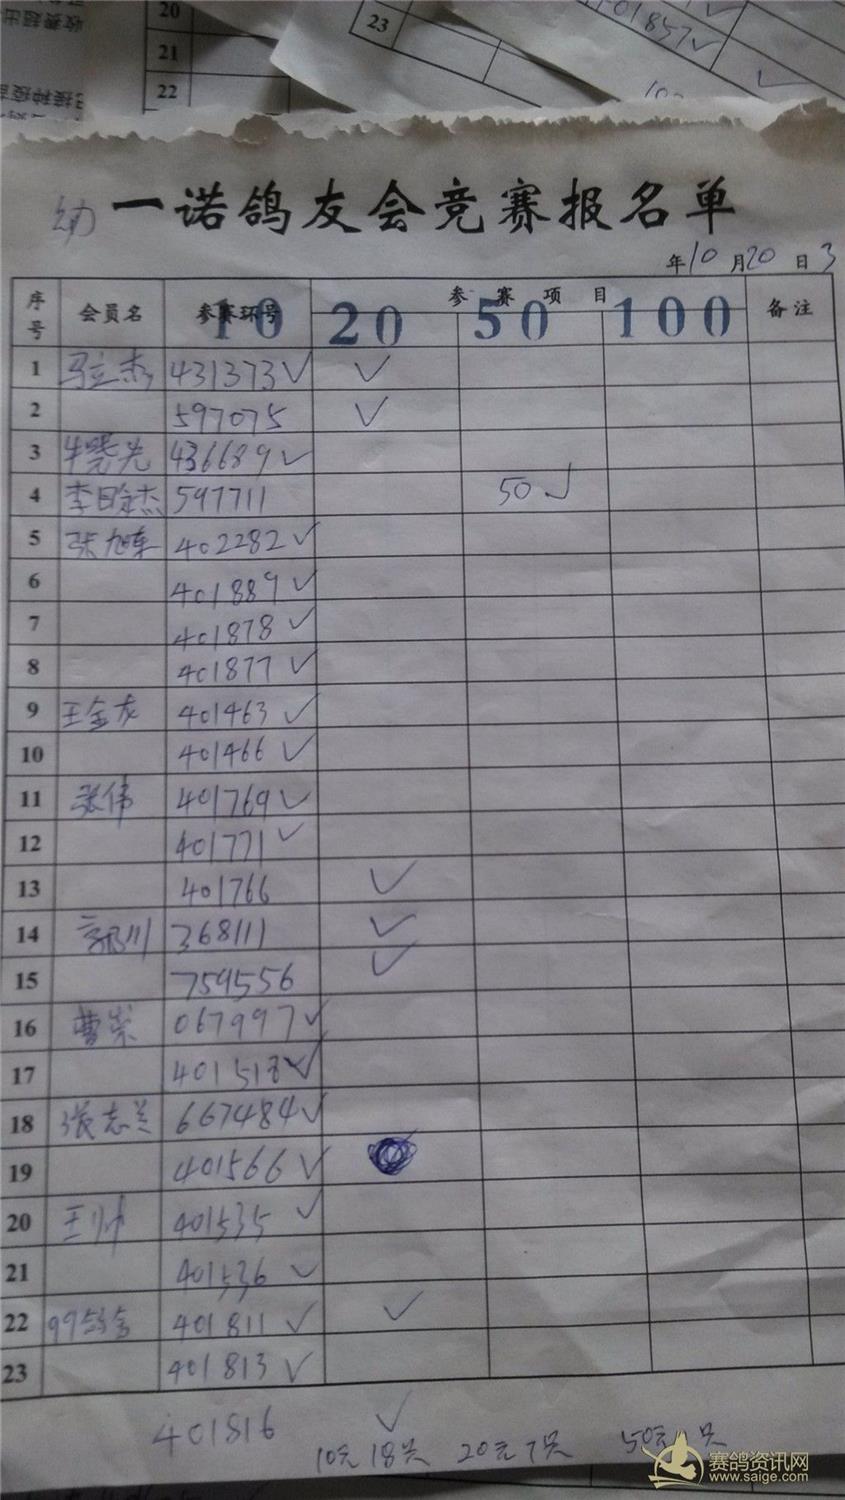 20
21
22
23
401857✓
收费超出
幼 一诺鸽友会竞赛报名单
年10月20日 3
序号 会员名 参赛环号 参赛项目 备注
10 20 50 100
1 马立杰 431373✓ ✓
2 597075 ✓
3 牛晓光 436689✓
4 597711 50✓
5 张旭东 402282✓
6 401889✓
7 401878✓
8 401877✓
9 王金龙 401463✓
10 401466✓
11 张伟 401769✓
12 401771✓
13 401766 ✓
14 368111 ✓
15 759556 ✓
16 曹崇 067997✓
17 401518✓
18 张志兰 667484✓
19 401566✓
20 王帅 401535✓
21 401536✓
22 401811✓ ✓
23 401813✓
401816 ✓
10元18只 20元7只 50元1只
赛鸽资讯网
www.saige.com